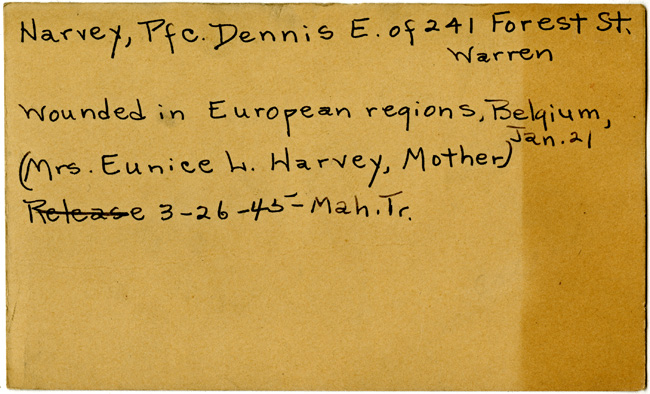 Harvey, Pfc. Dennis E. of 241 Forest St.
Warren
Wounded in European regions, Belgium,
Jan. 21
(Mrs. Eunice L. Harvey, Mother)
Release 3-26-45- Mah. Tr.